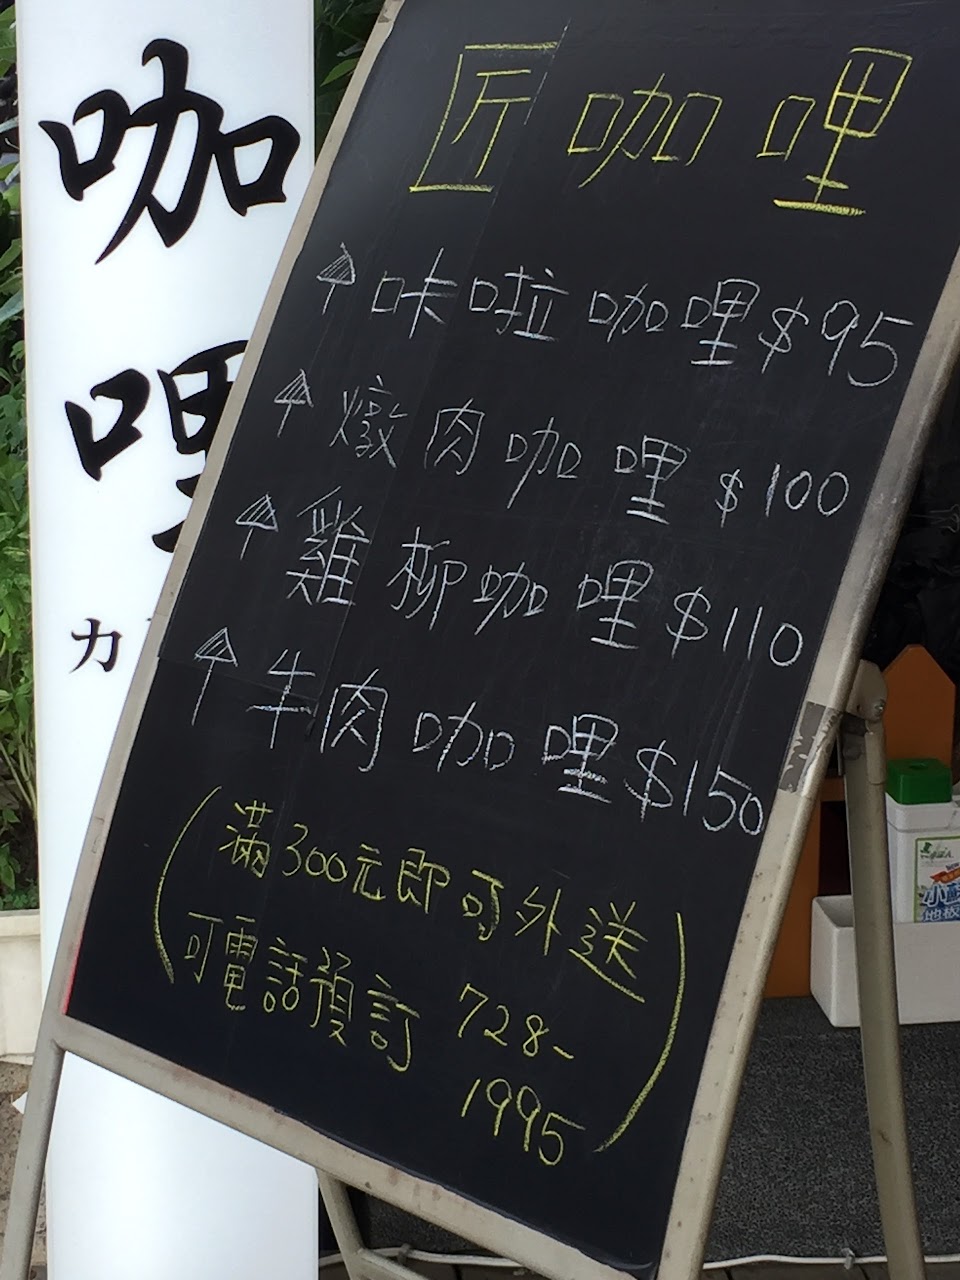 咖
哩
カ
匠咖哩
咔啦咖哩$95
燉肉咖哩$100
雞柳咖哩$110
牛肉咖哩$150
(滿300元即可外送
可電話預訂 728-
1995)
小蘇
地板